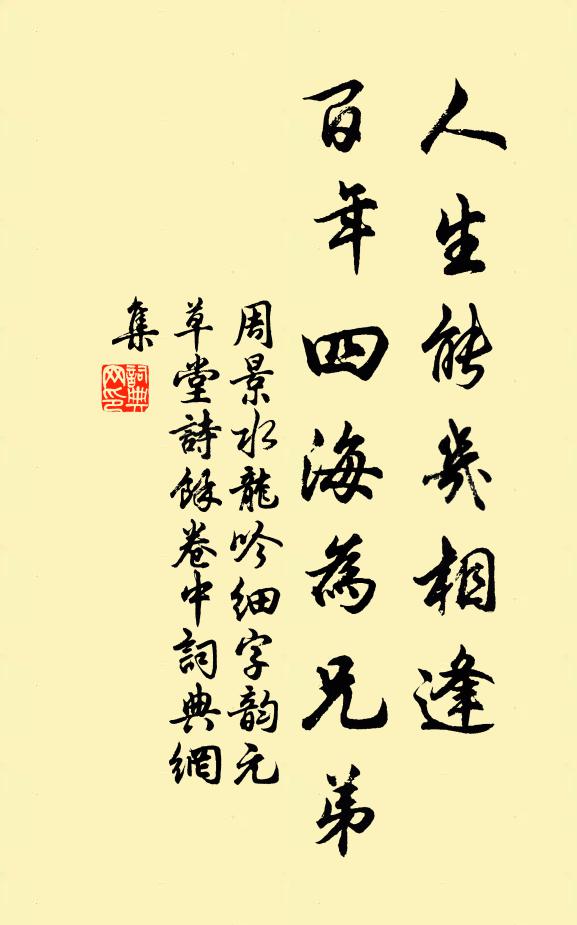 人生能幾相逢
百年四海為兄弟
周景水龍吟細字韵元
草堂詩餘卷中詞典網
集
詞典網印